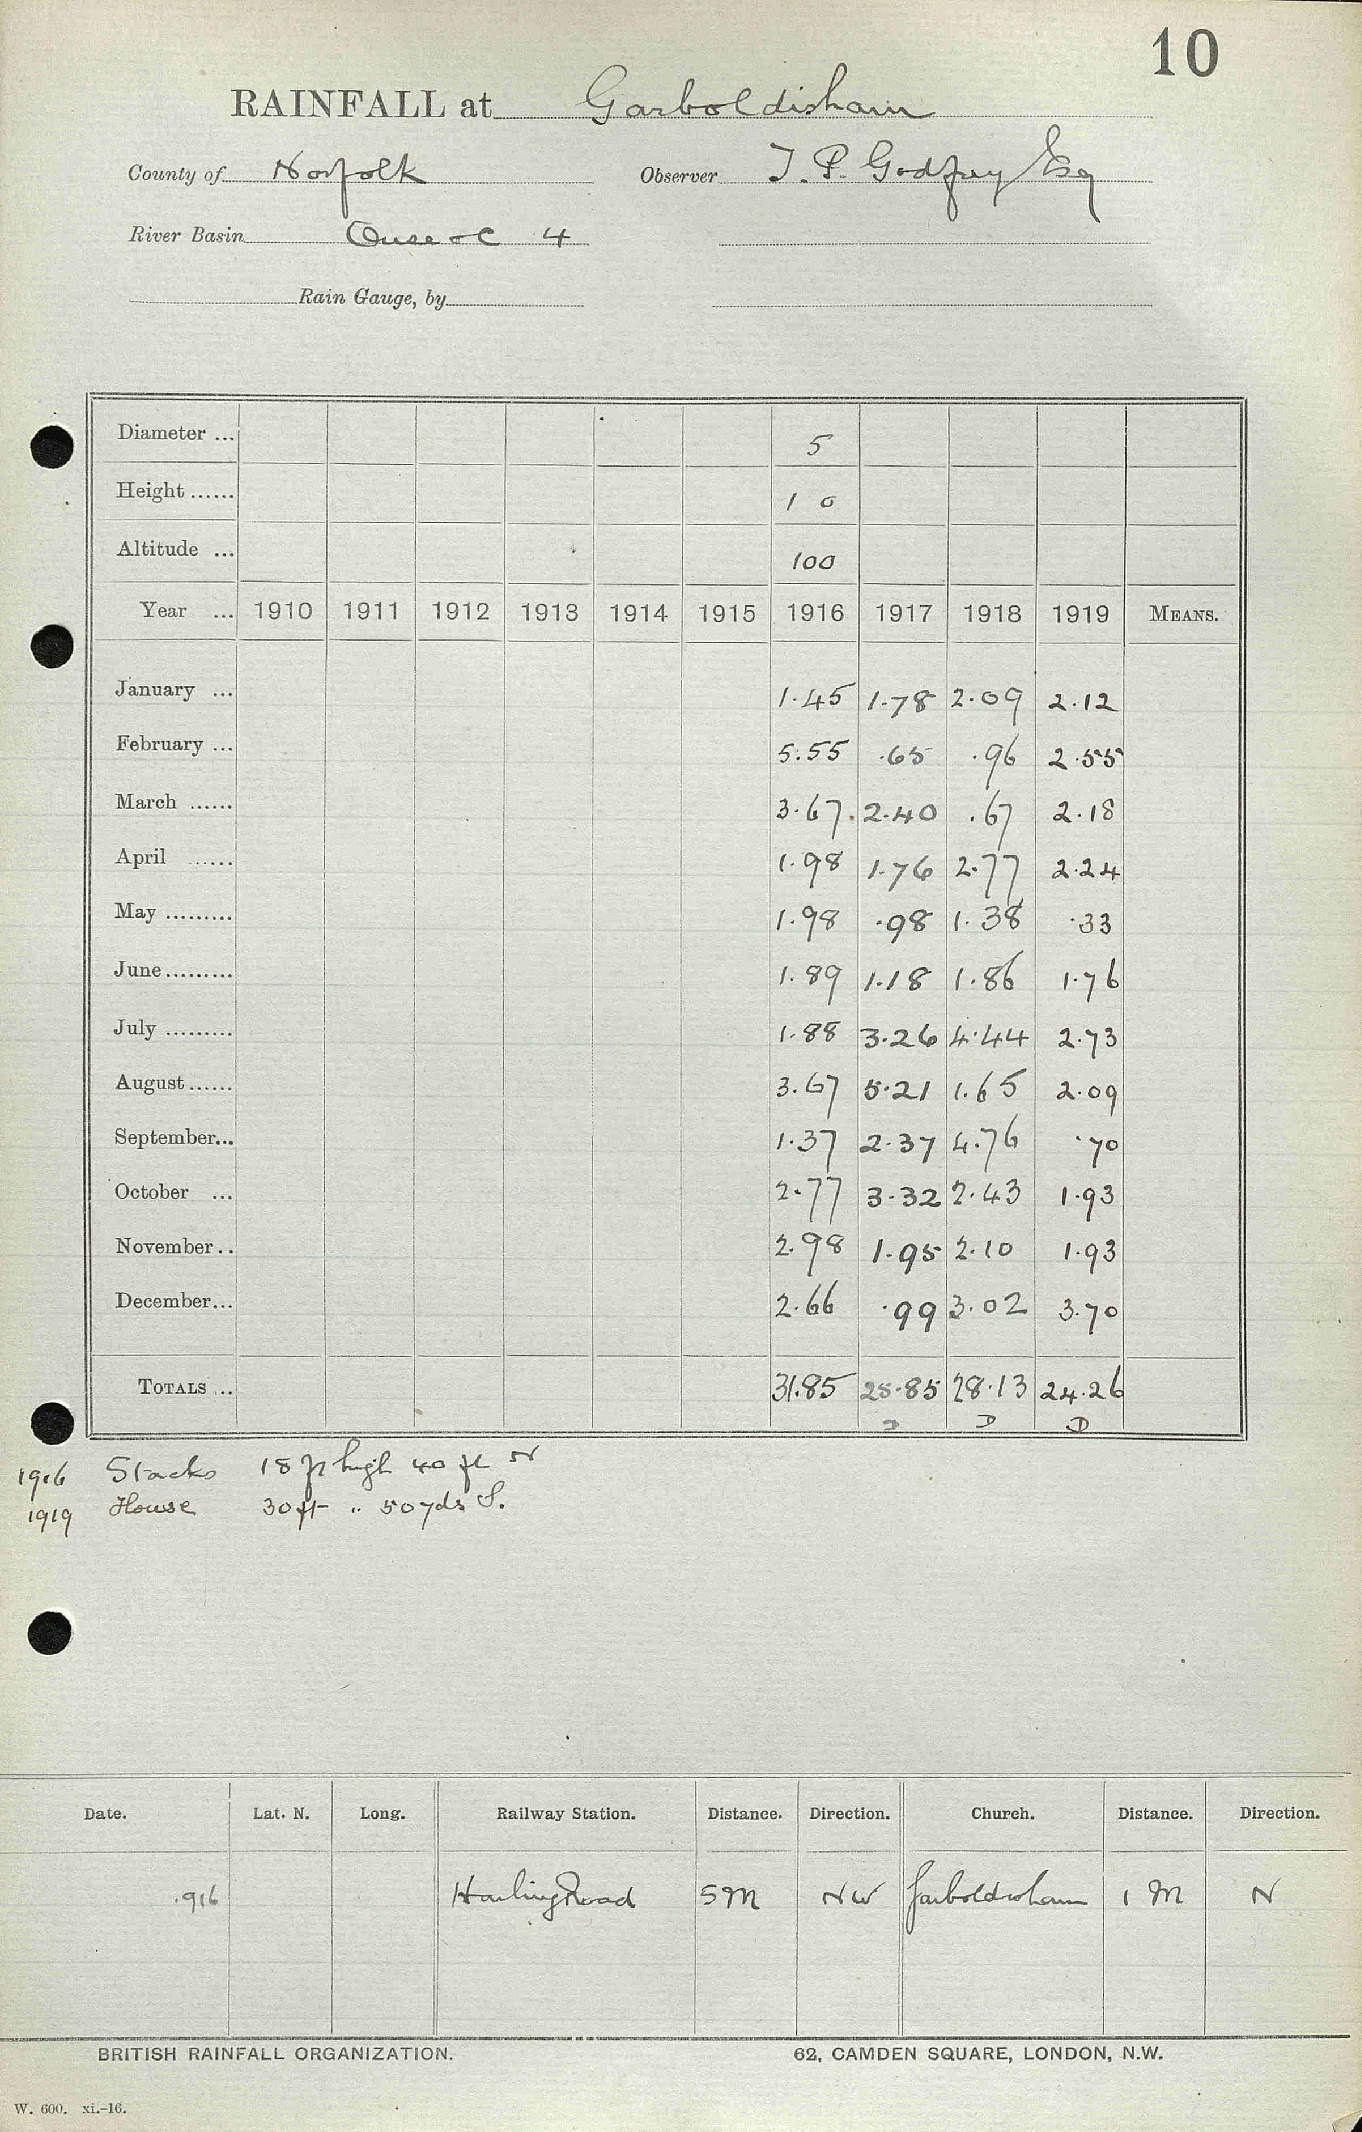 10
RAINFALL at Garboldisham
County of Norfolk Observer J. P. Godfrey Esq
River Basin Ouse &c 4
Rain Gauge, by
Diameter ... 5
Height ...... 1 0
Altitude ... 100
Year ... 1910 1911 1912 1913 1914 1915 1916 1917 1918 1919 MEANS.
January ... 1.45 1.78 2.09 2.12
February ... 5.55 .65 .96 2.55
March ...... 3.67 2.40 .67 2.18
April ...... 1.98 1.76 2.77 2.24
May ......... 1.98 .98 1.38 .33
June......... 1.89 1.18 1.86 1.76
July ......... 1.88 3.26 4.44 2.73
August...... 3.67 5.21 1.65 2.09
September... 1.37 2.37 4.76 .70
October ... 2.77 3.32 2.43 1.93
November.. 2.98 1.95 2.10 1.93
December... 2.66 .99 3.02 3.70
TOTALS ... 31.85 25.85 28.13 24.26
D D D
1916 Stacks 18 ft high 40 ft N
1919 House 30 ft " 50 yds S.
Date. Lat. N. Long. Railway Station. Distance. Direction. Church. Distance. Direction.
.916 Harling Road 5 M NW Garboldisham 1 M N
BRITISH RAINFALL ORGANIZATION. 62, CAMDEN SQUARE, LONDON, N.W.
W. 600. xi.-16.